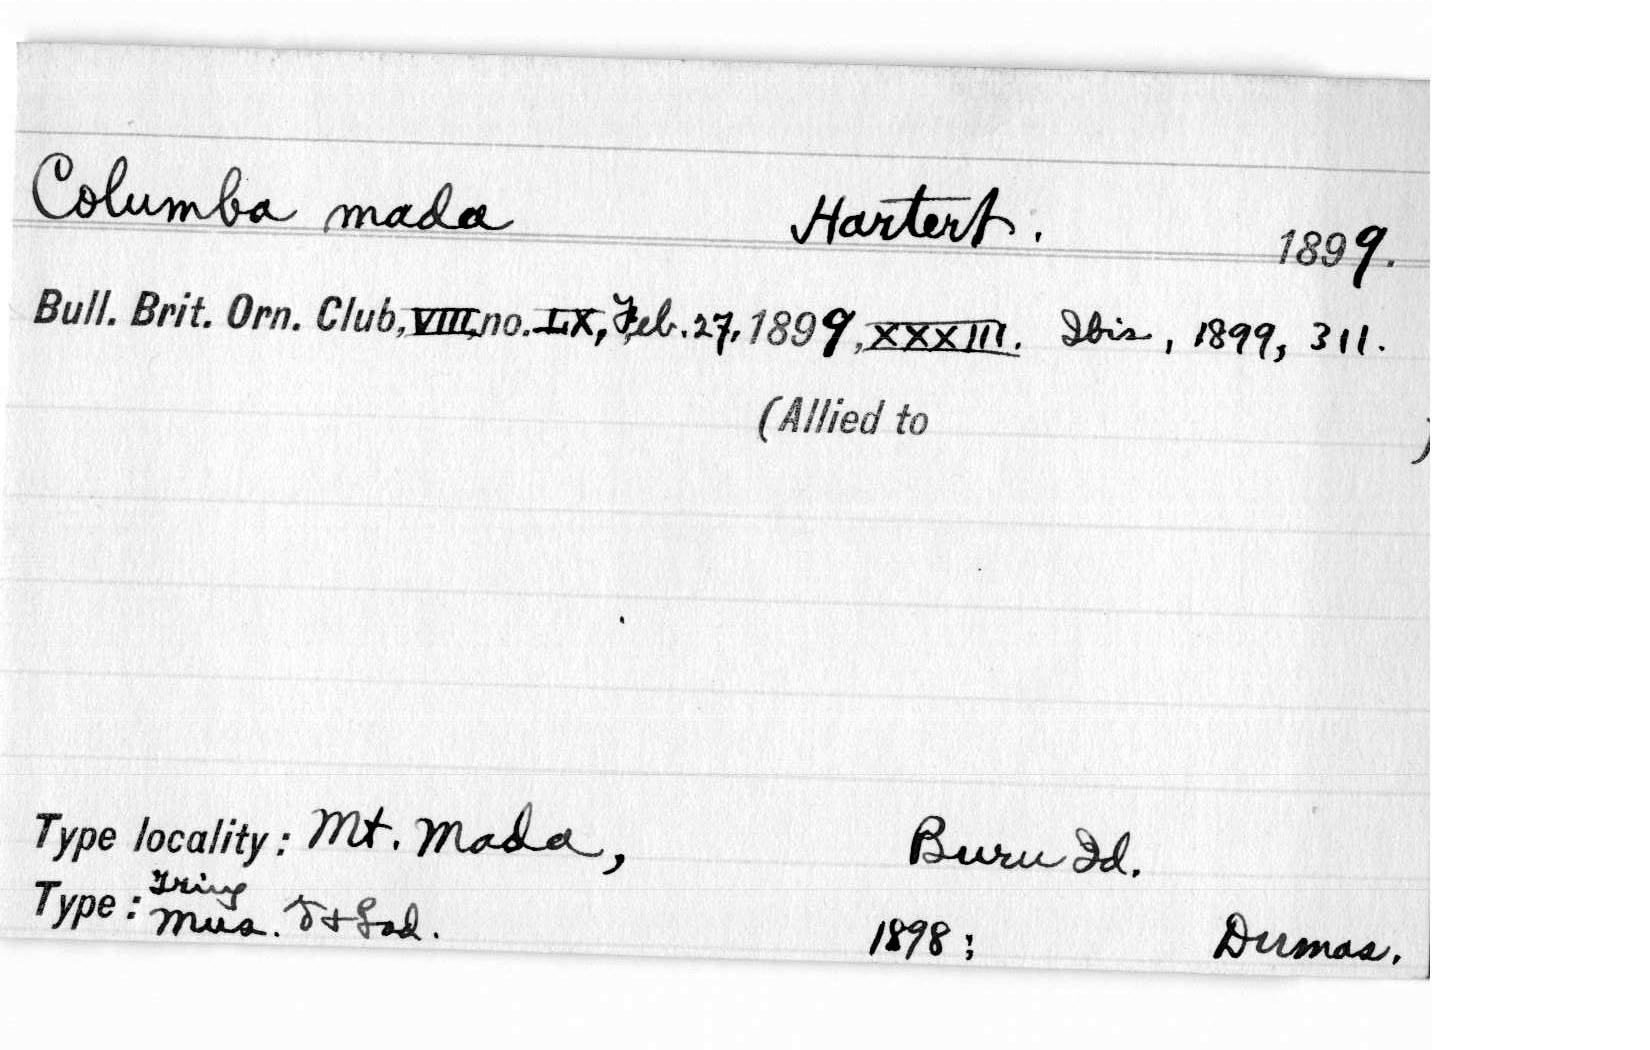 Columba mada Hartert. 1899.
Bull. Brit. Orn. Club, VIII, no. LX, Feb. 27, 1899, XXXIII. Ibis, 1899, 311.
(Allied to )
Type locality: Mt. Mada, Buru Id.
Type: Tring
Mus. ad. 1898; Dumas.